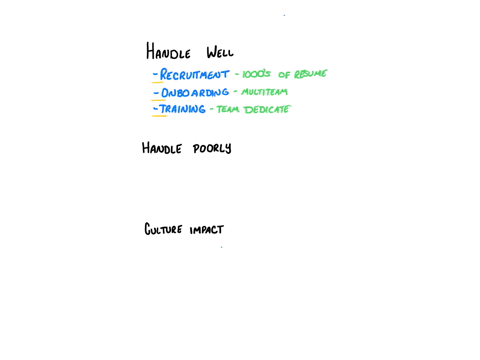 HANDLE WELL
-RECRUITMENT - 1000'S OF RESUME
-ONBOARDING - MULTITEAM
-TRAINING - TEAM DEDICATE
HANDLE POORLY
CULTURE IMPACT